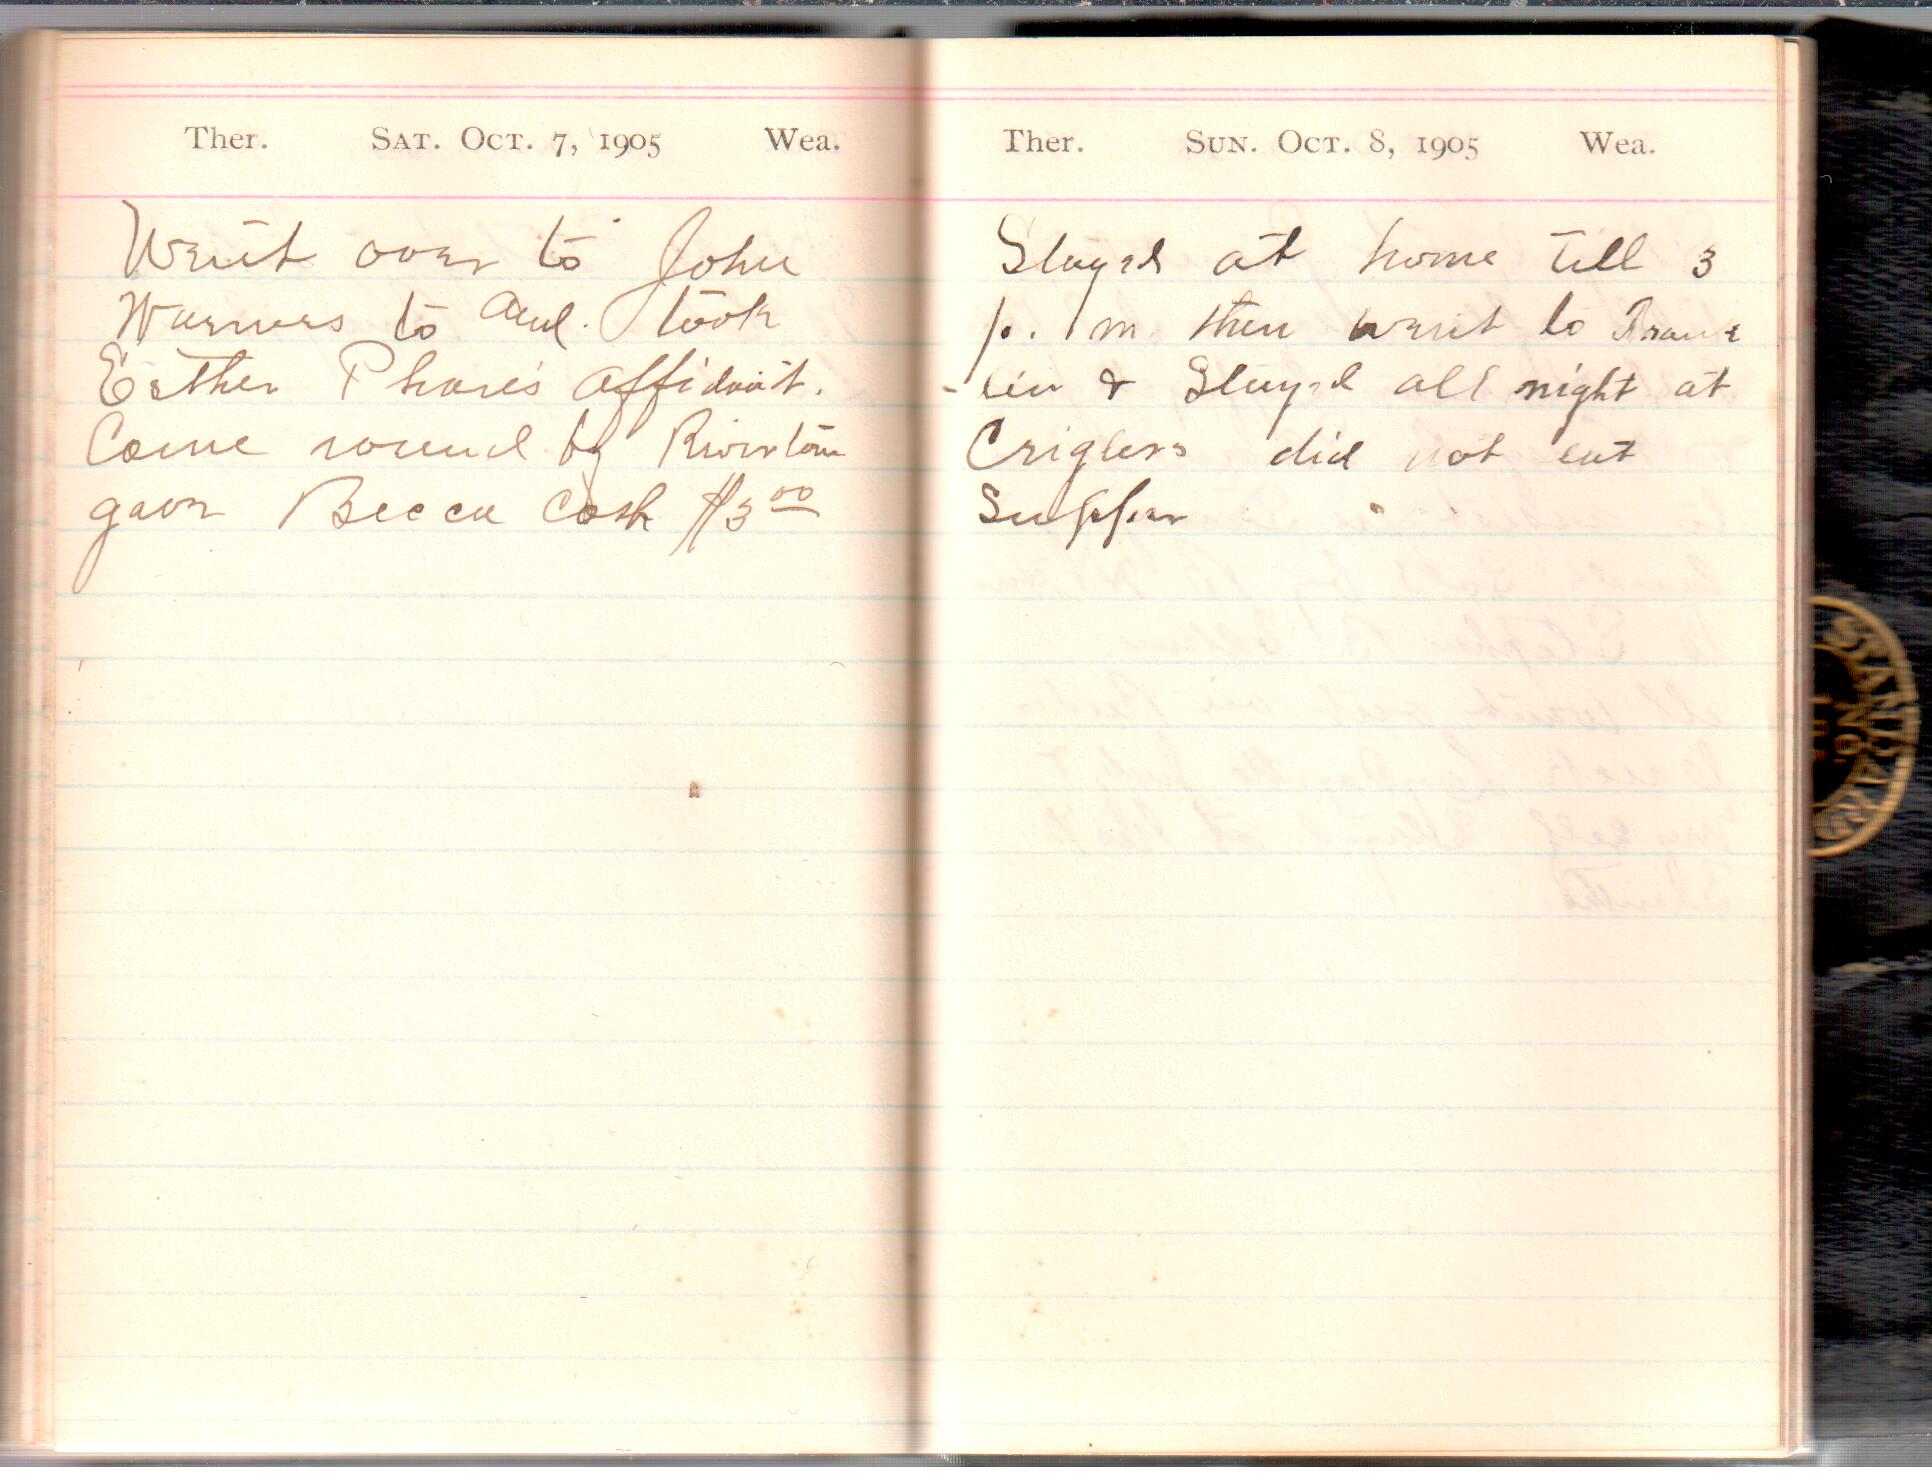 Ther. Sat. Oct. 7, 1905 Wea.
Went over to John
Warners to and. took
Esther Phares affidavit.
Came round by Riverton
gave Becca Cash $3 00
Ther. Sun. Oct. 8, 1905 Wea.
Stayed at home till 3
p. m. then went to Frank
-lin & Stayed all night at
Criglers did not eat
Supper
STANDARD
NO.